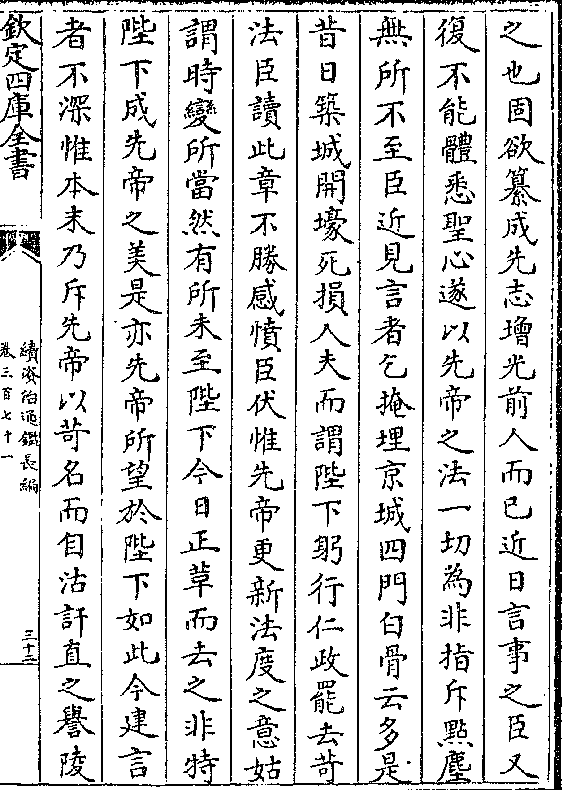 之也固欲纂成先志增光前人而已近日言事之臣又
復不能體悉聖心遂以先帝之法一切為非指斥點塵
無所不至臣近見言者乞掩埋京城四門白骨云多是
昔日築城開壕死損人夫而謂陛下躬行仁政罷去苛
法臣讀此章不勝感憤臣伏惟先帝更新法度之意姑
謂時變所當然有所未至陛下今日正草而去之非特
陛下成先帝之美是亦先帝所望於陛下如此今建言
者不深惟本末乃斥先帝以苛名而自沽訐直之譽陵
欽定四庫全書
續資治通鑑長編
卷三百七十一
三十三